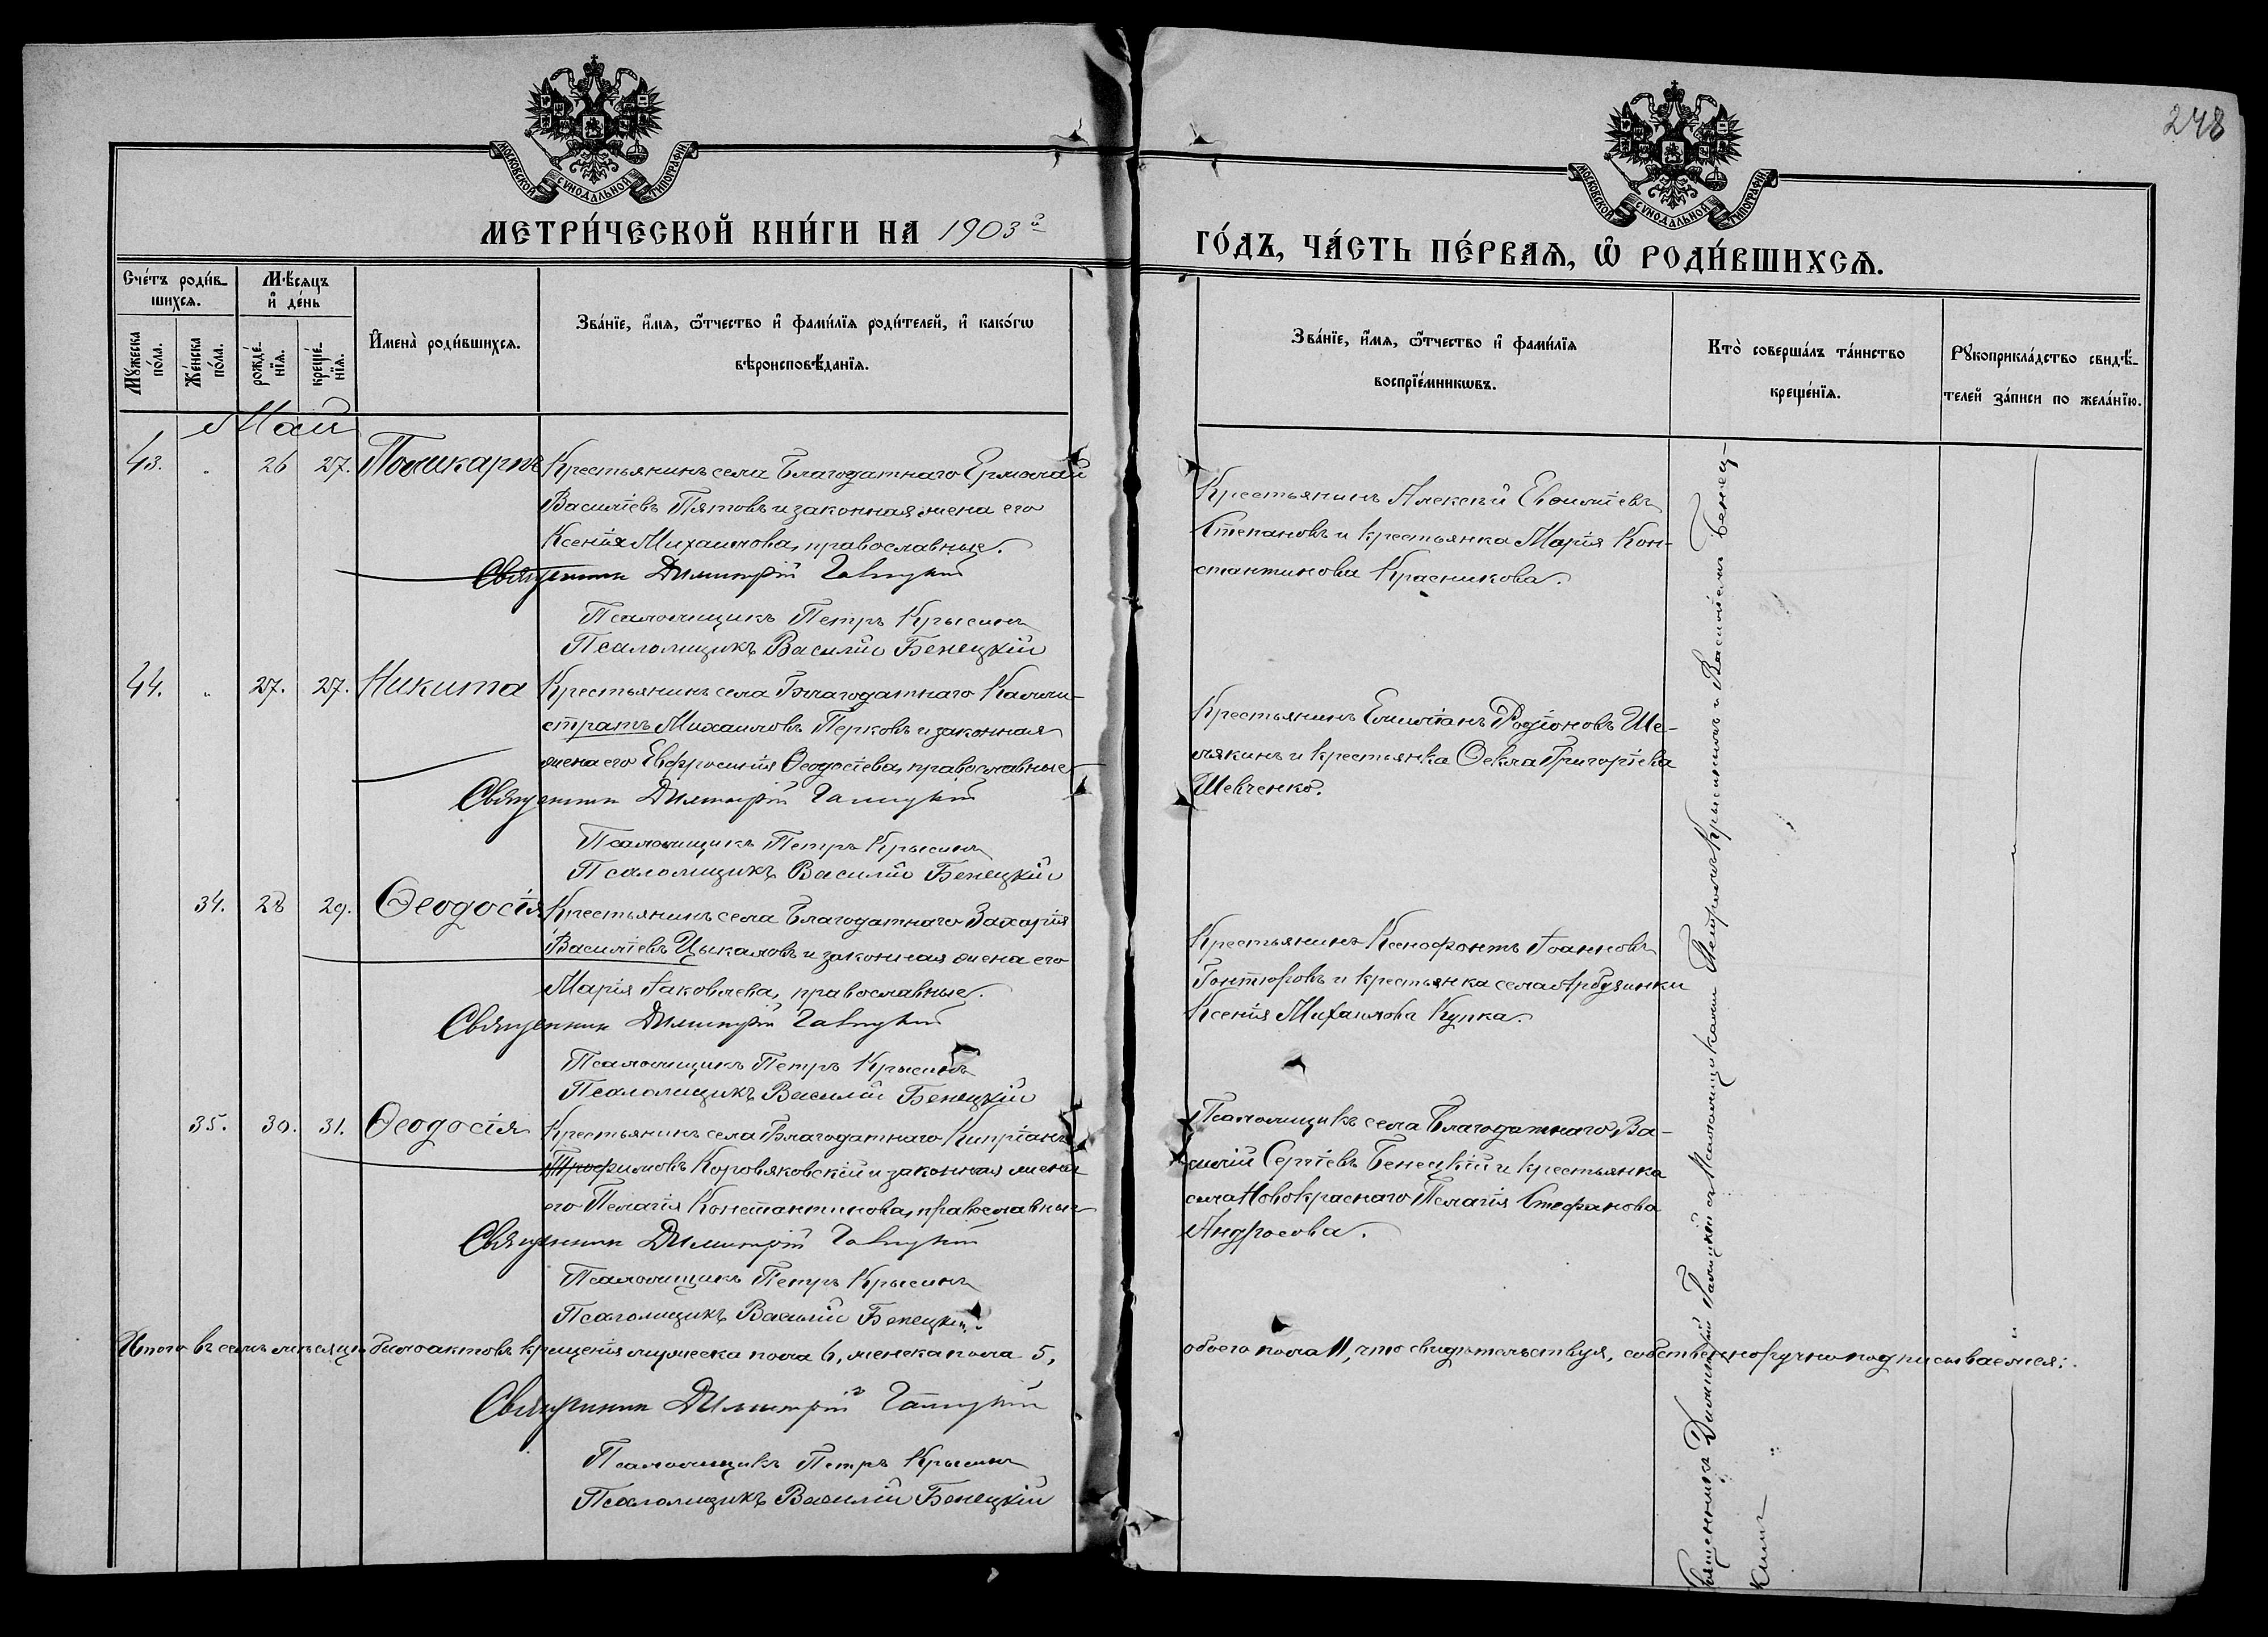 248
МОСКОВСКОЙ СѴНОДАЛЬНОЙ ТИПОГРАФІИ
МОСКОВСКОЙ СѴНОДАЛЬНОЙ ТИПОГРАФІИ
МЕТРИ́ЧЕСКОЙ КНИ́ГИ НА 1903й
ГО́ДЪ, ЧА́СТЬ ПЕ́РВАѦ, Ѡ҆ РОДИ́ВШИХСѦ.
Сче́тъ роди́в-
шихсѧ.
Мѣ́сѧцъ
и҆ де́нь
Мꙋ́жеска
по́ла.
Же́нска
по́ла.
рожде́-
нїѧ.
креще́-
нїѧ.
И҆мена̀ роди́вшихсѧ.
Зва́нїе, и҆́мѧ, ѿтчество и҆ фами́лїѧ роди́телей, и҆ како́гѡ
вѣроисповѣ́данїѧ.
Зва́нїе, и҆́мѧ, ѿтчество и҆ фами́лїѧ
воспрїе́мникѡвъ.
Кто̀ соверша́лъ та́инство
креще́нїѧ.
Рꙋкоприкла́дство свидѣ́-
телей за́писи по жела́нїю.
Май
43. " 26 27. Поликарпъ Крестьянинъ села Благодатнаго Ермолай
Василіевъ Пятовъ и законная жена его
Ксенія Михаилова, православные.
Священникъ Димитрій Галицкій
Псаломщикъ Петръ Крысинъ
Псаломщикъ Василій Бенецкій
Крестьянинъ Алексѣй Евѳиміевъ
Степановъ и крестьянка Марія Кон-
стантинова Красникова.
44. " 27. 27. Никита Крестьянинъ села Благодатнаго Калли-
стратъ Михаиловъ Перковъ и законная
жена его Евфросинія Ѳеодосіева, православные
Священникъ Димитрій Галицкій
Псаломщикъ Петръ Крысинъ
Псаломщикъ Василій Бенецкій
Крестьянинъ Емиліанъ Родіоновъ Ше-
лякинъ и крестьянка Ѳекла Григоріева
Шевченко.
34. 28 29. Ѳеодосія Крестьянинъ села Благодатнаго Захарія
Василіевъ Цыкаловъ и законная жена его
Марія Іаковлева, православные.
Священникъ Димитрій Галицкій
Псаломщикъ Петръ Крысинъ
Псаломщикъ Василій Бенецкій
Крестьянинъ Ксенофонтъ Іоанновъ
Гонтюровъ и крестьянка села Арбузинки
Ксенія Михаилова Купка.
35. 30. 31. Ѳеодосія Крестьянинъ села Благодатнаго Кипріанъ
Трофимовъ Коровяковскій и законная жена
его Пелагія Константинова, православные
Священникъ Димитрій Галицкій
Псаломщикъ Петръ Крысинъ
Псаломщикъ Василій Бенецкій.
Псаломщикъ села Благодатнаго Ва-
силій Сергіевъ Бенецкій и крестьянка
села Новокраснаго Пелагія Стефанова
Андросова.
Священникъ Димитрій Галицкій съ Псаломщиками Петромъ Крысинымъ и Василіемъ Бенец-
кимъ
Итого въ семъ мѣсяцѣ было актовъ крещенія мужеска пола 6, женска пола 5,
обоего пола 11, что свидѣтельствуя, собственноручно подписываемся:
Священникъ Димитрій Галицкій
Псаломщикъ Петръ Крысинъ
Псаломщикъ Василій Бенецкій